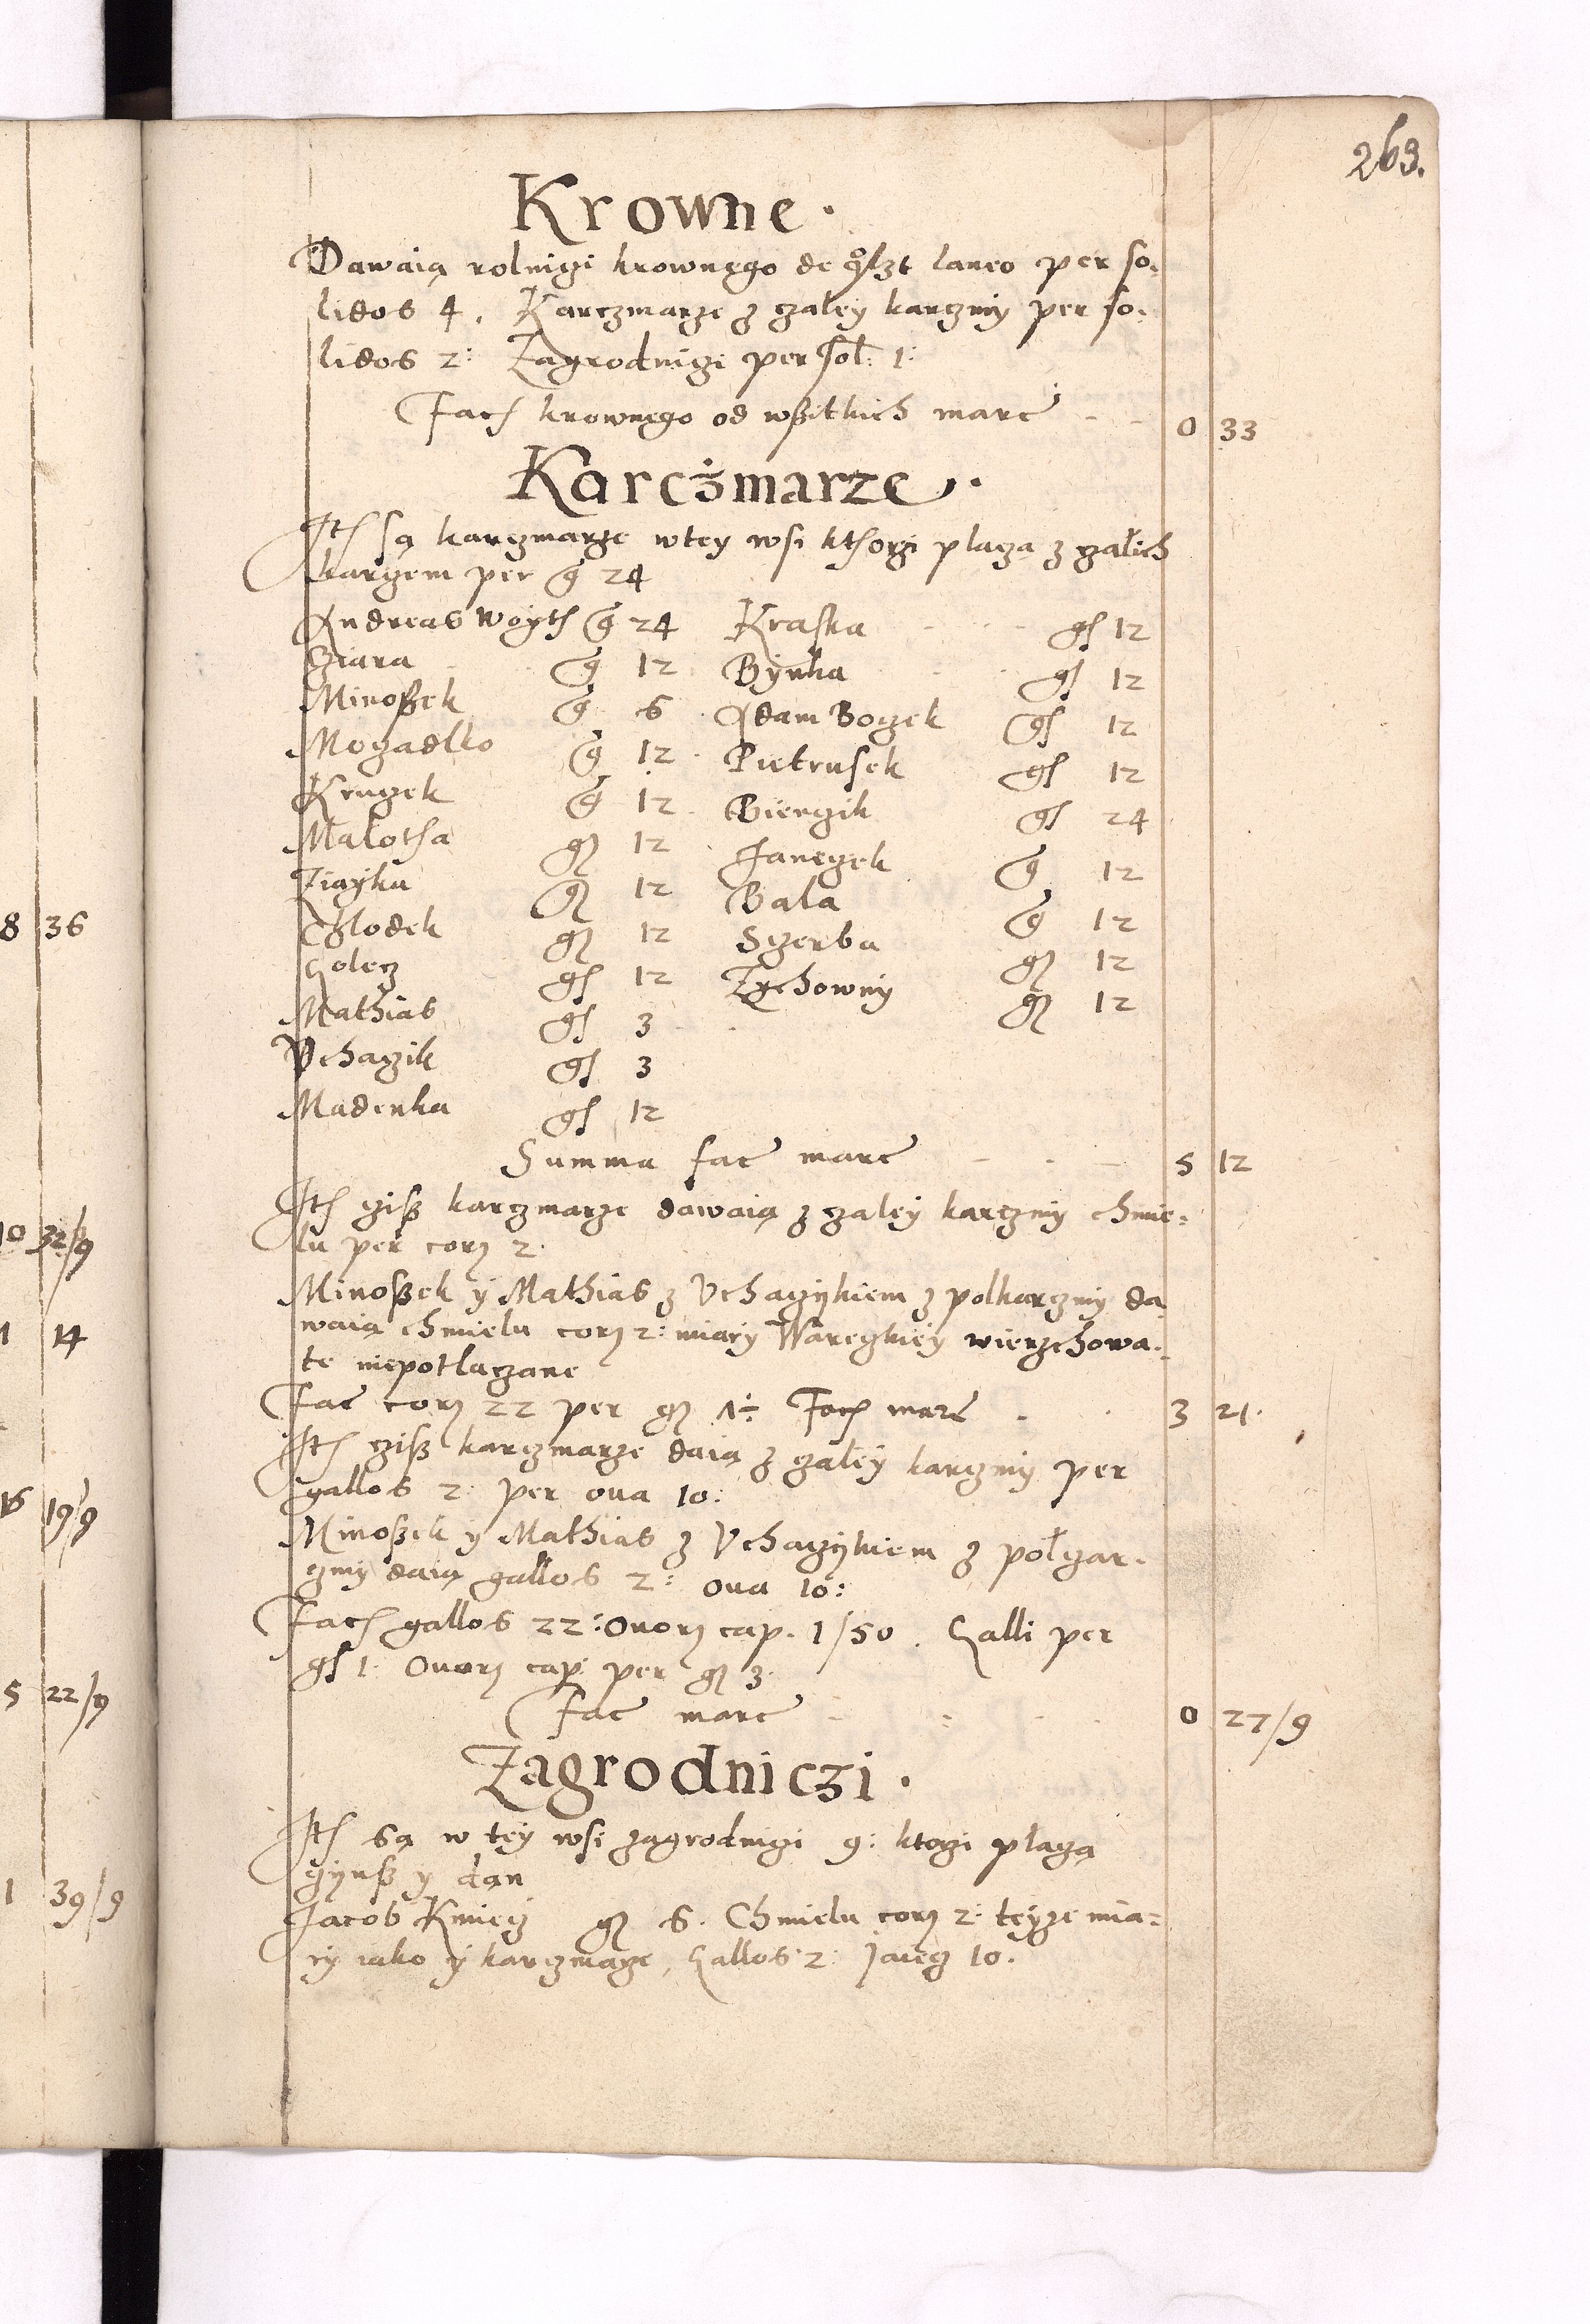 263.
Krowne.
Dawaią rolniczi krownego de laneo per so-
lidos 4. Karczmarze z czaley karczmy per so-
lidos 2: Zagrodniczi per sol: 1:
Fac krownego od wßitkich marc 0 33
Karczmarze.
Ith są karczmarze w tey wsi kthorzi placzą z czalich
karczem per g 24
Andreas Woyth g 24 Kraska gs 12
Cziara g 12 Bynka gs 12
Minoßek g 6 Adam Boczek gs 12
Moczadlko g 12 Pietrusek gs 12
Kruczek g 12 Bierczik gs 24
Malotha gs 12 Janeczek g 12
Ziayka gs 12 Bala g 12
Chlodek gs 12 Sczerba gs 12
Golecz gs 12 Zychowny gs 12
Mathias gs 3
Vchaczik gs 3
Madenka gs 12
Summa fac marc 5 12
Ith cziß karczmarze dawaią z czaley karczmy chmie-
lu per cor 2.
Minoßek y Mathias z Vchaczykiem z polkarczmy da
waią chmielu cor 2: miary Wareczkiey wierzchowa-
te niepotlaczane
Fac cor 22 per gs 1÷ Fac marc 3 21.
Ith cziß karczmarze daią z czaley karczmy per
gallos 2: per oua 10:
Minoßek y Mathias z Vchaczykiem z polczar-
czmy daią gallos 2: oua 10:
Fac gallos 22: Ouor cap. 1/50. Galli per
gs 1: Ouor cap: per gs 3.
Fac marc 0 27/9
Zagrodniczi.
Ith są w tey wsi zagrodniczi 9: ktorzi placzą
czynß y dan
Jacob Kmiecz gs 6. Chmielu cor 2: teyze mia-
ry iako y karczmarze, Gallos 2: Jaiecz 10.
8 36
10 32/9
1 14
16 19/9
5 22/9
1 39/9